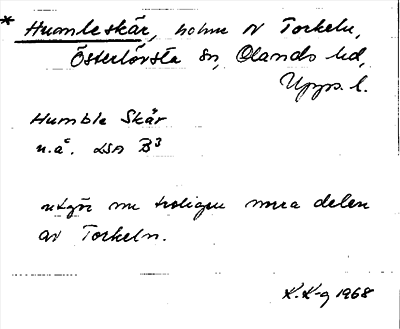 * Humleskär, holme NV Torkeln,
Österlövsta sn, Olands hd,
Upps. l.
Humble Skär
u.å. LSA B³
utgör nu troligen norra delen
av Torkeln.
K.K-g 1968